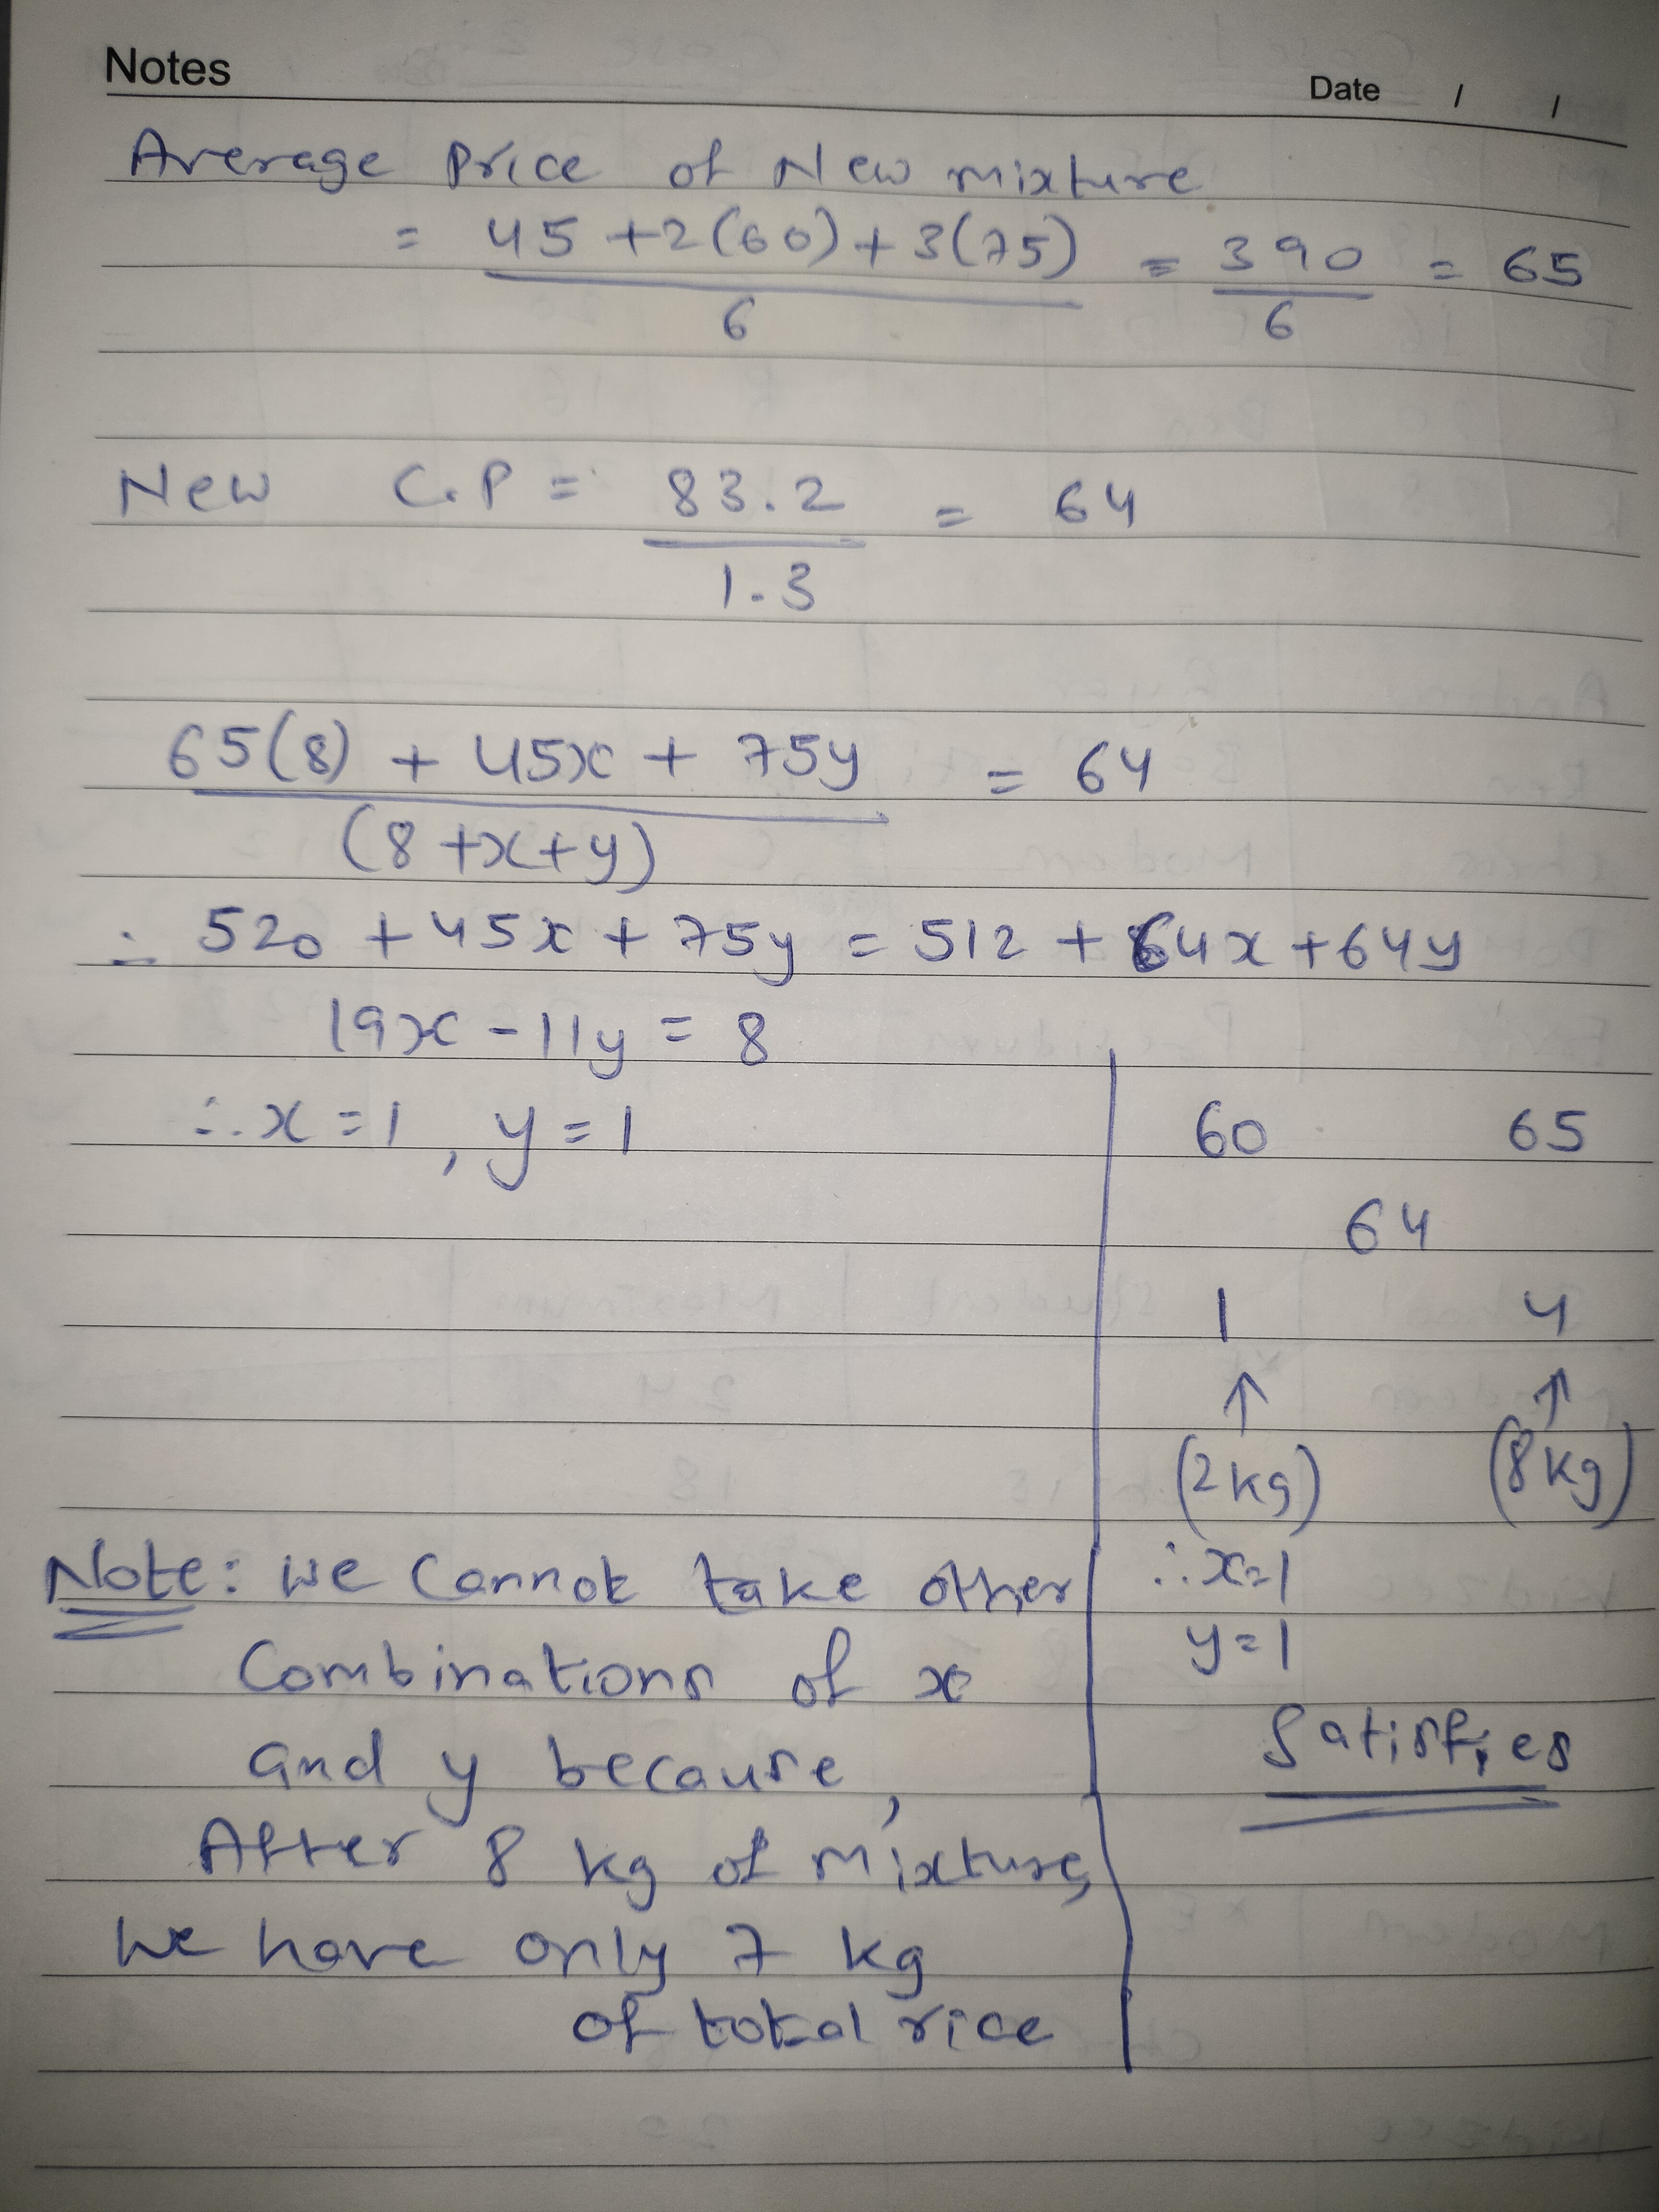 Notes
Date / /
Average Price of New mixture
= 45 + 2(60) + 3(75) = 390 = 65
6 6
New C.P = 83.2 = 64
1.3
65(8) + 45x + 75y = 64
(8 + x + y)
∴ 520 + 45x + 75y = 512 + 64x + 64y
19x - 11y = 8
∴ x = 1, y = 1
60 65
64
1 4
↑ ↑
(2 kg) (8 kg)
∴ x=1
y=1
Satisfies
Note: We Cannot take other
Combinations of x
and y because,
After 8 kg of mixture,
We have only 7 kg
of total rice